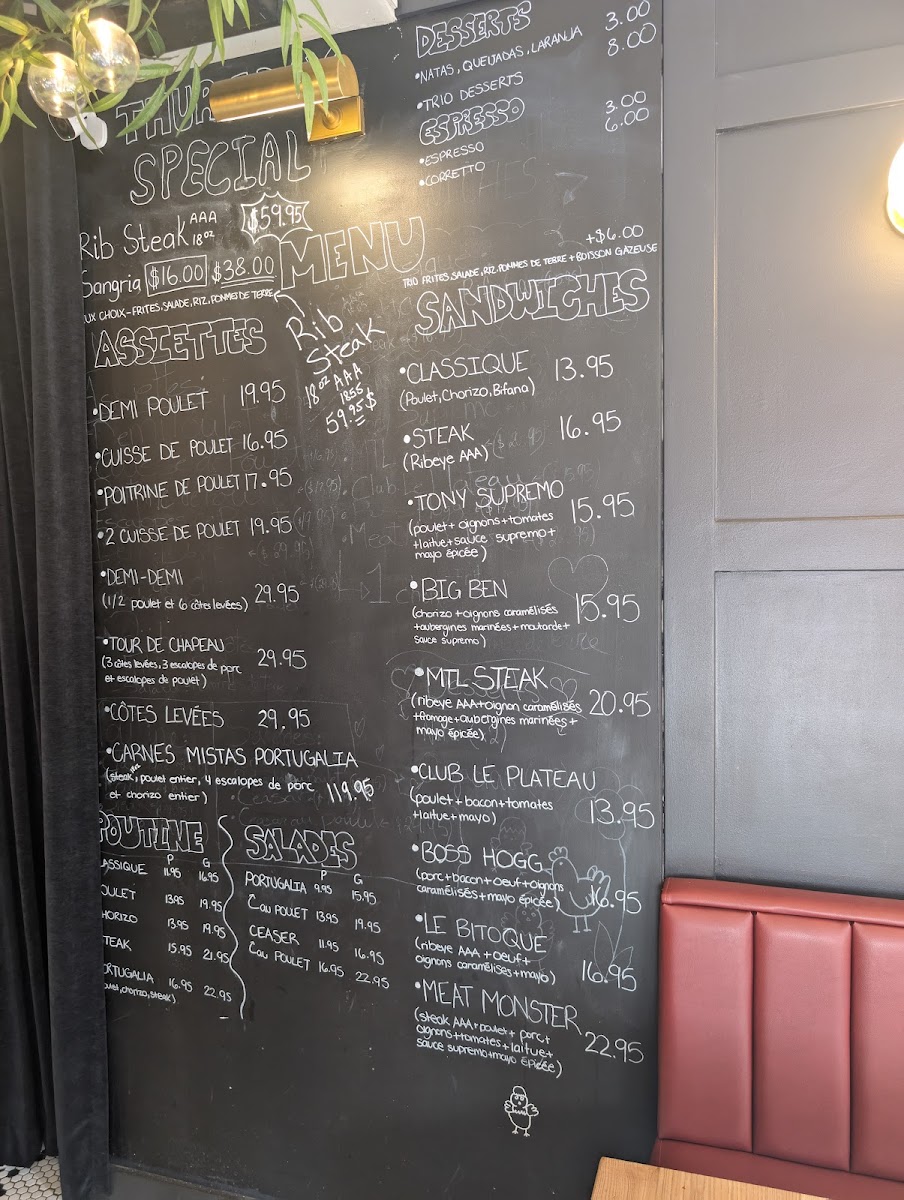 SPECIAL
Rib Steak AAA
18oz
$59.95
Sangria $16.00 $38.00
UX CHOIX - FRITES, SALADE, RIZ, POMMES DE TERRE
MENU
Rib
Steak
18oz AAA
1855
59.95$
ASSIETTES
•DEMI POULET 19.95
•CUISSE DE POULET 16.95
•POITRINE DE POULET 17.95
•2 CUISSE DE POULET 19.95
•DEMI-DEMI
(1/2 poulet et 6 côtes levées) 29.95
•TOUR DE CHAPEAU
(3 côtes levées, 3 escalopes de porc 29.95
et escalopes de poulet)
•CÔTES LEVÉES 29.95
•CARNES MISTAS PORTUGALIA
(steak, poulet entier, 4 escalopes de porc 119.95
et chorizo entier)
POUTINE
P G
ASSIQUE 11.95 16.95
OULET 13.95 19.95
HORIZO 13.95 19.95
TEAK 15.95 21.95
ORTUGALIA 16.95 22.95
oulet, chorizo, steak)
SALADES
P G
PORTUGALIA 9.95 15.95
POULET 13.95 19.95
CEASER 11.95 16.95
POULET 16.95 22.95
DESSERTS
•NATAS, QUEIJADAS, LARANJA 3.00
•TRIO DESSERTS 8.00
ESPRESSO
•ESPRESSO 3.00
•CORRETTO 6.00
+$6.00
TRIO FRITES, SALADE, RIZ, POMMES DE TERRE + BOISSON GAZEUSE
SANDWICHES
•CLASSIQUE 13.95
(Poulet, Chorizo, Bifana)
•STEAK 16.95
(Ribeye AAA)
•TONY SUPREMO 15.95
(poulet + oignons + tomates
+ laitue + sauce supremo +
mayo épicée)
•BIG BEN 15.95
(chorizo + oignons caramélisés
+ aubergines marinées + moutarde +
sauce supremo)
•MTL STEAK 20.95
(ribeye AAA + oignon caramélisés
+ fromage + aubergines marinées +
mayo épicée)
•CLUB LE PLATEAU
(poulet + bacon + tomates 13.95
+ laitue + mayo)
•BOSS HOGG
(porc + bacon + oeuf + oignons 16.95
caramélisés + mayo épicée)
•LE BITOQUE
(ribeye AAA + oeuf + 16.95
oignons caramélisés + mayo)
•MEAT MONSTER
(steak AAA + poulet + porc + 22.95
oignons + tomates + laitue +
sauce supremo + mayo épicée)